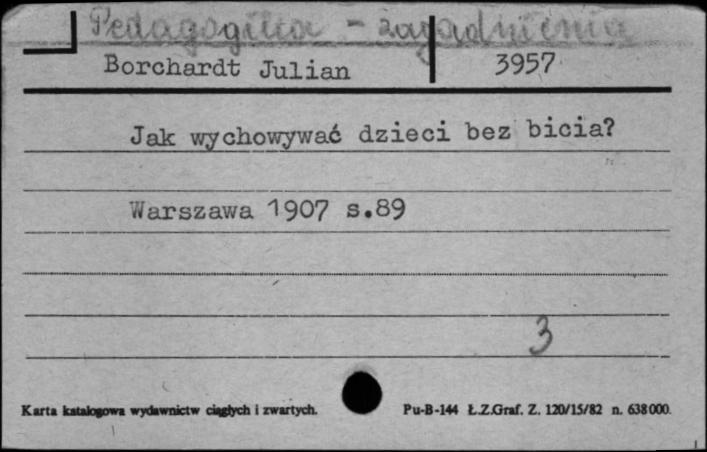 Pedagogika - zagadnienia
Borchardt Julian 3957
Jak wychowywać dzieci bez bicia?
Warszawa 1907 s.89
3
Karta katalogowa wydawnictw ciągłych i zwartych. Pu-B-144 Ł.Z.Graf. Z. 120/15/82 n. 638000.